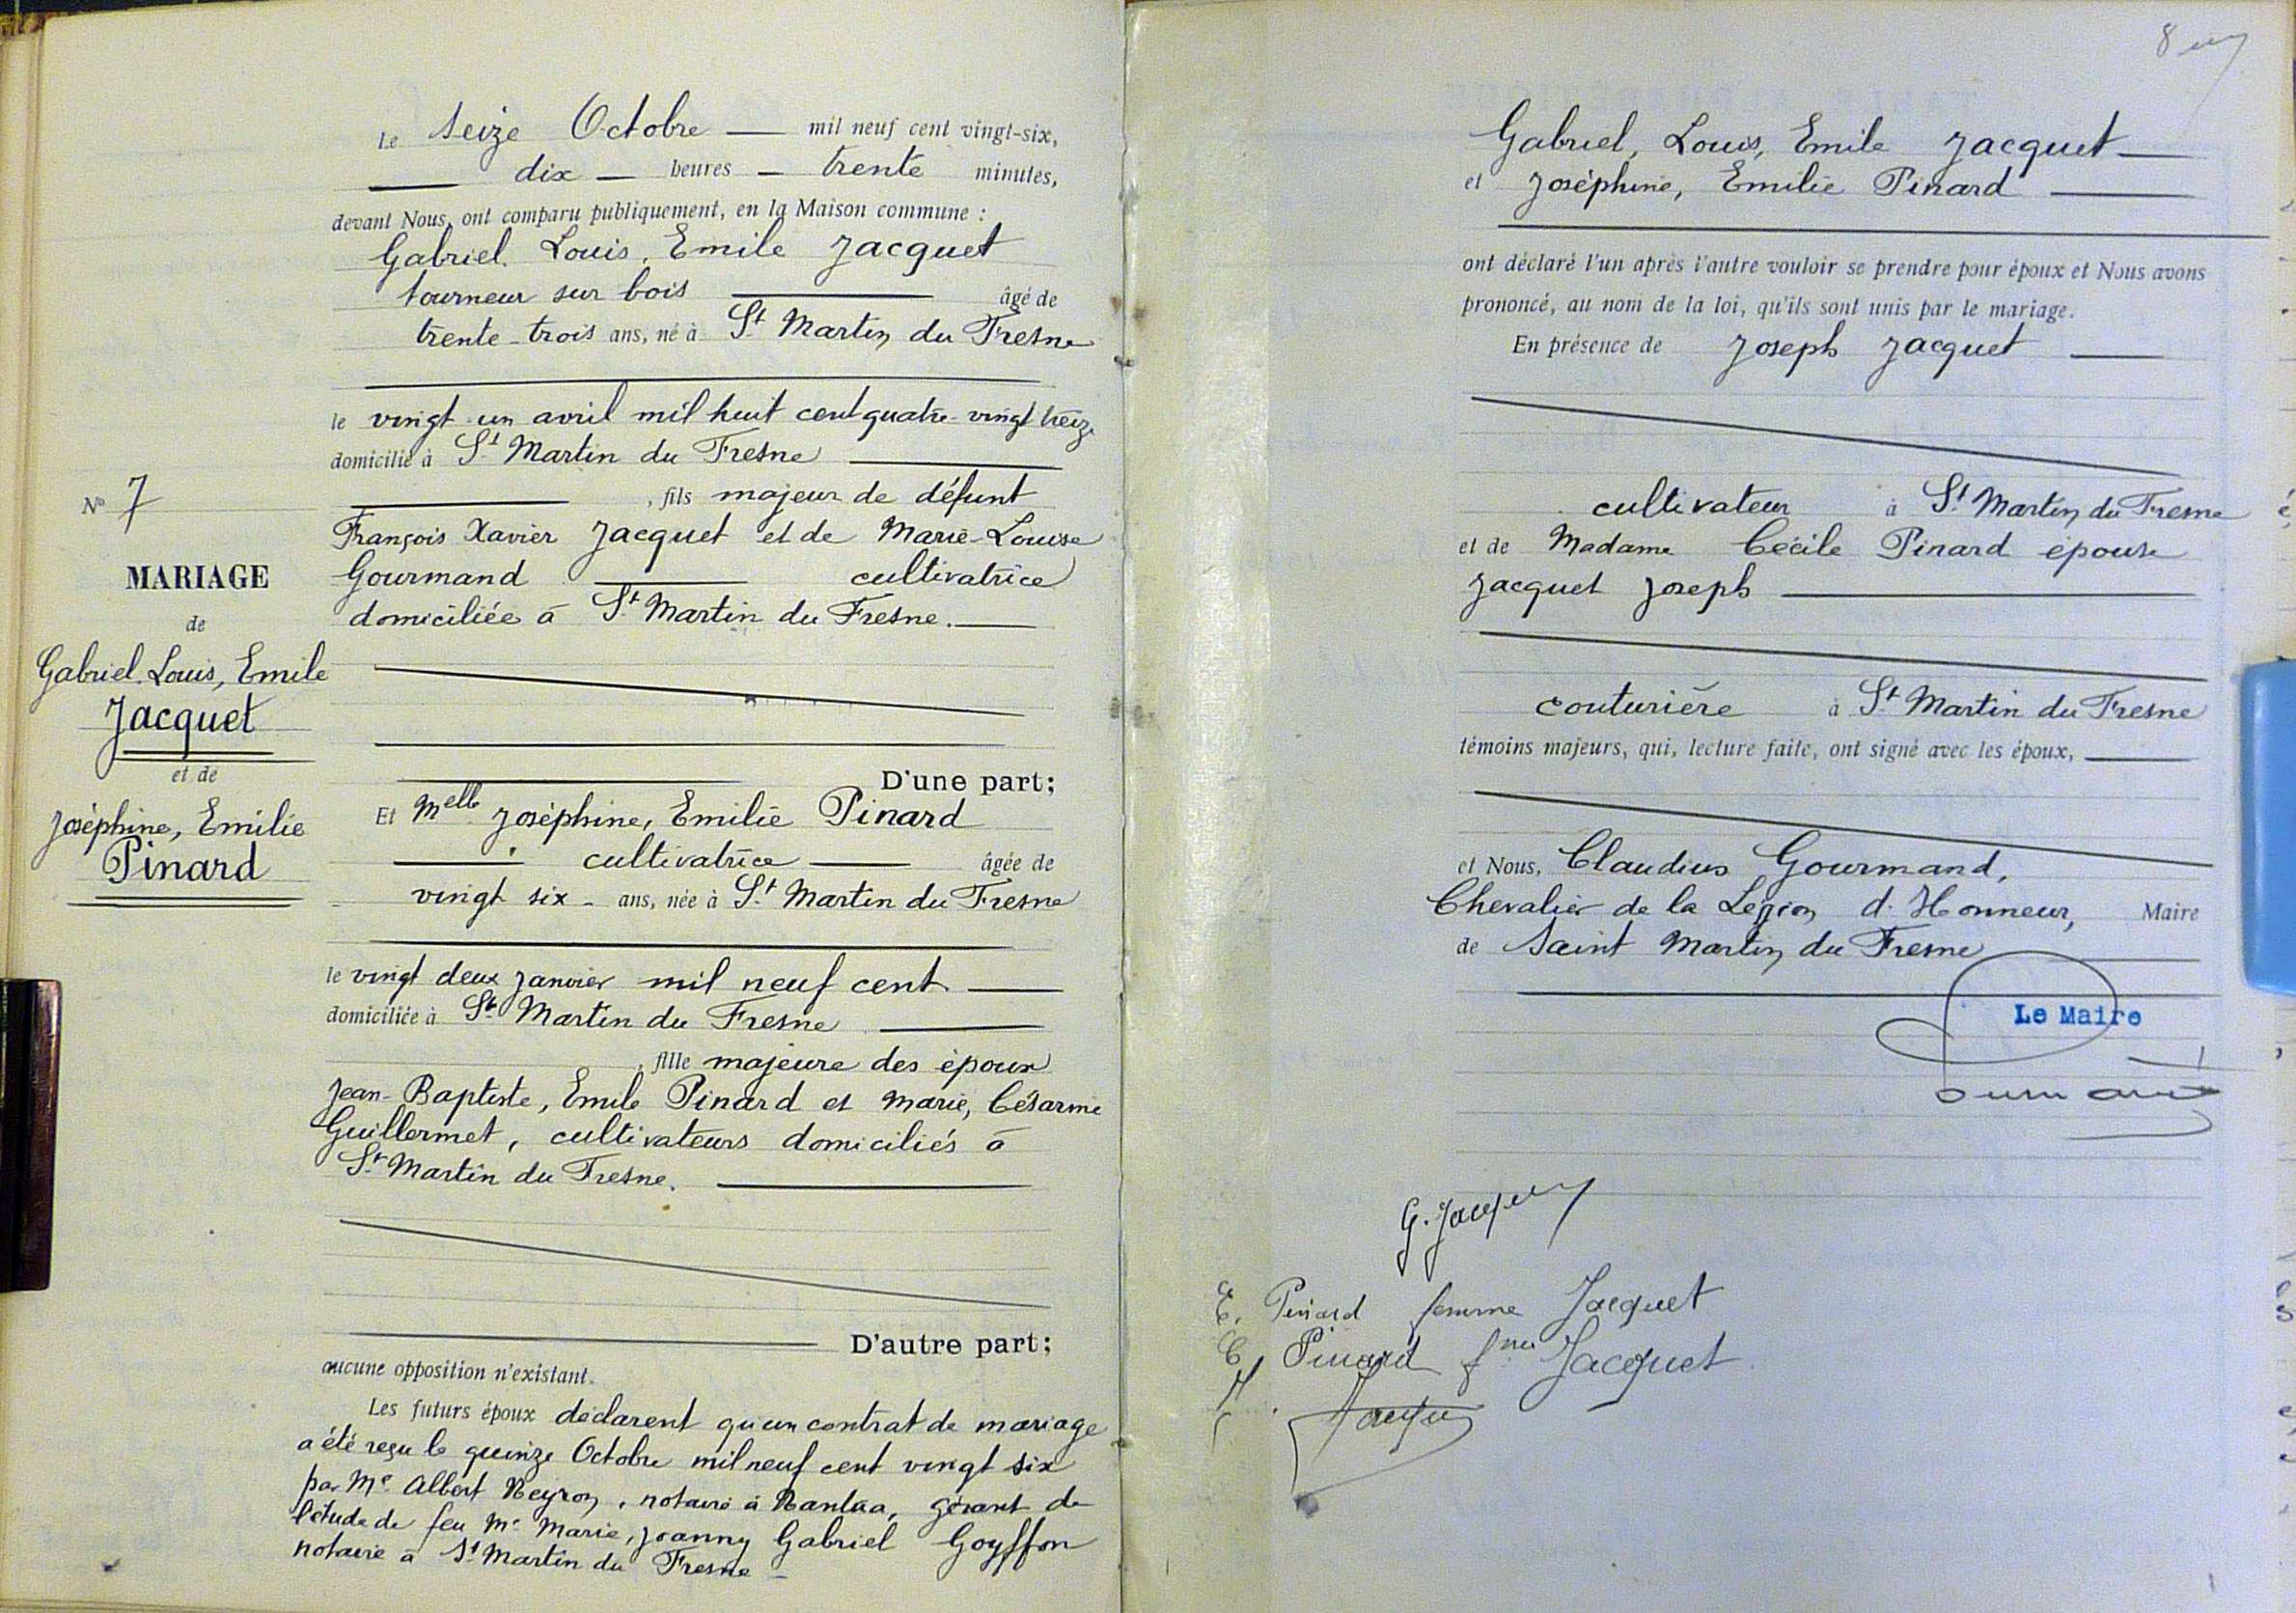 Le seize Octobre — mil neuf cent vingt-six,
— dix — heures — trente minutes,
devant Nous, ont comparu publiquement, en la Maison commune :
Gabriel, Louis, Emile Jacquet
tourneur sur bois — âgé de
trente-trois ans, né à St Martin du Fresne
le vingt-un avril mil huit cent quatre-vingt treize
domicilié à St Martin du Fresne —
— , fils majeur de défunt
François Xavier Jacquet et de Marie-Louise
Gourmand — cultivatrice
domiciliée à St Martin du Fresne. —
D'une part;
Et Melle Joséphine, Emilie Pinard
— cultivatrice — âgée de
vingt six - ans, née à St Martin du Fresne
le vingt deux janvier mil neuf cent —
domiciliée à St Martin du Fresne —
, fille majeure des époux
Jean-Baptiste, Emile Pinard et Marie, Césarine
Guillermet, cultivateurs domiciliés à
St Martin du Fresne. —
— D'autre part;
aucune opposition n'existant.
Les futurs époux déclarent qu'un contrat de mariage
a été reçu le quinze Octobre mil neuf cent vingt six
par Me Albert Neyron, notaire à Nantua, gérant de
l'étude de feu Me Marie, Joanny Gabriel Goyffon
notaire à St Martin du Fresne —
No 7
MARIAGE
de
Gabriel, Louis, Emile
Jacquet
et de
Joséphine, Emilie
Pinard
8
Gabriel, Louis, Emile Jacquet —
et Joséphine, Emilie Pinard —
ont déclaré l'un après l'autre vouloir se prendre pour époux et Nous avons
prononcé, au nom de la loi, qu'ils sont unis par le mariage.
En présence de Joseph Jacquet —
cultivateur à St Martin du Fresne
et de Madame Cécile Pinard épouse
Jacquet Joseph —
couturière à St Martin du Fresne
témoins majeurs, qui, lecture faite, ont signé avec les époux, —
et Nous, Claudius Gourmand,
Chevalier de la Légion d'Honneur, Maire
de Saint Martin du Fresne —
Le Maire
Gourmand
G. Jacquet
E. Pinard femme Jacquet
C. Pinard fme Jacquet
J. Jacquet